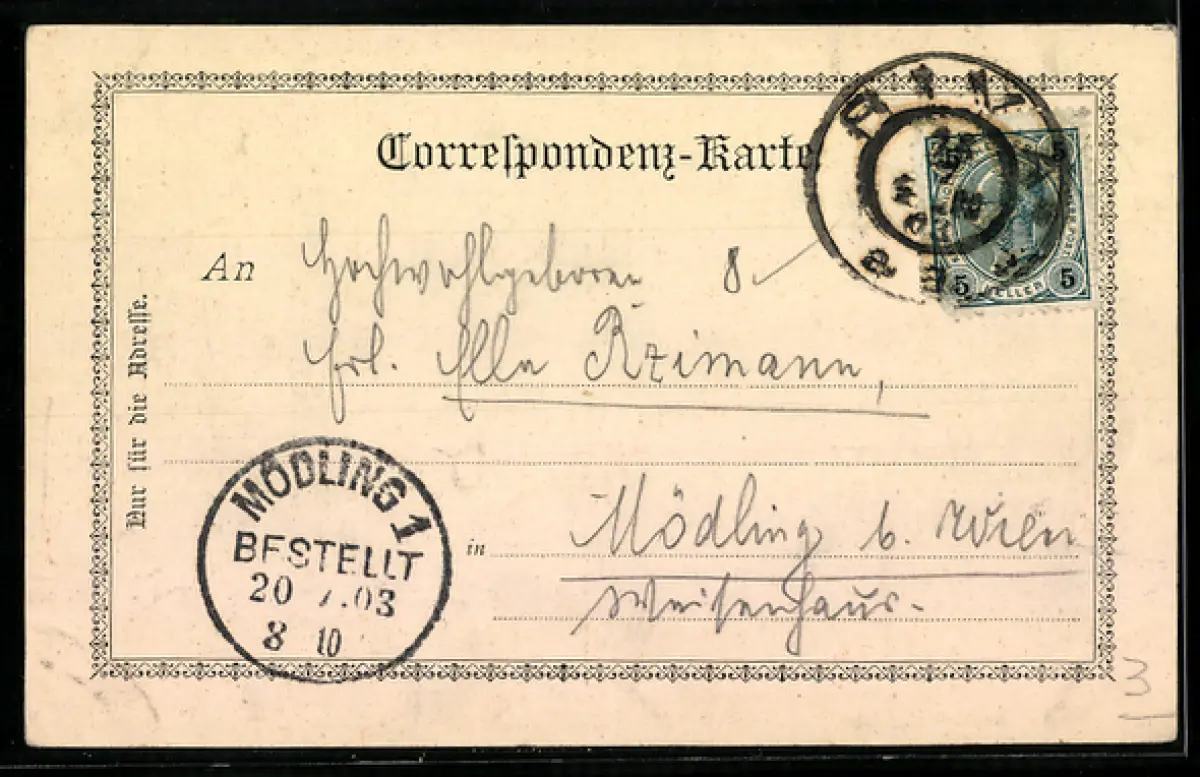 Correspondenz-Karte.
An Hochwohlgeboren 8
Frl. Ella Rzimann,
in Mödling b. Wien
Weisenhaus.
Nur für die Adresse.
MÖDLING 1
BESTELLT
20 7.03
8 10
5 5
5 HELLER 5
3